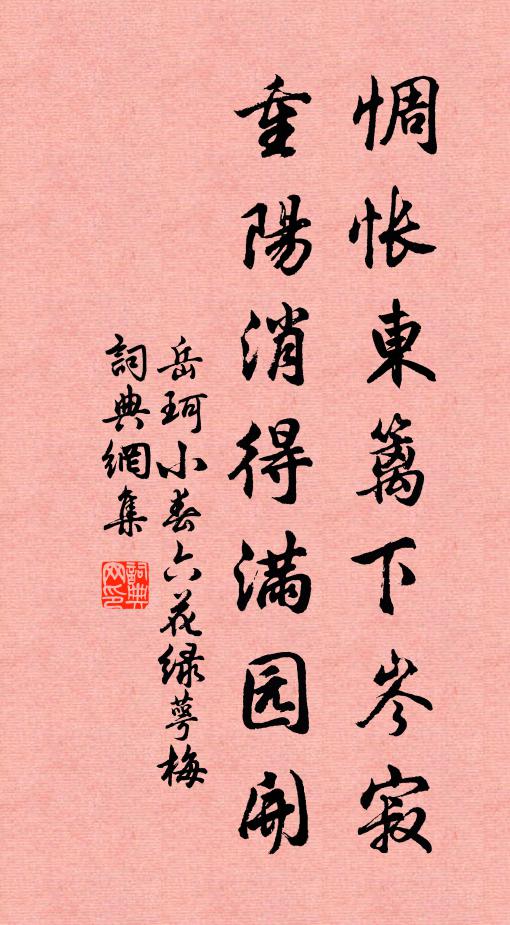 惆怅東籬下岑寂
重陽消得满园開
岳珂小春六花绿萼梅
詞典網集
詞典网印